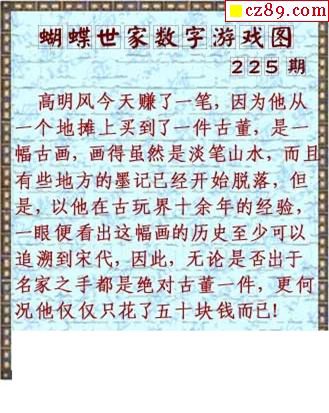 cz89.com
蝴蝶世家数字游戏图
225 期
高明风今天赚了一笔，因为他从
一个地摊上买到了一件古董，是一
幅古画，画得虽然是淡笔山水，而且
有些地方的墨记已经开始脱落，但
是，以他在古玩界十余年的经验，
一眼便看出这幅画的历史至少可以
追溯到宋代，因此，无论是否出于
名家之手都是绝对古董一件，更何
况他仅仅只花了五十块钱而已!